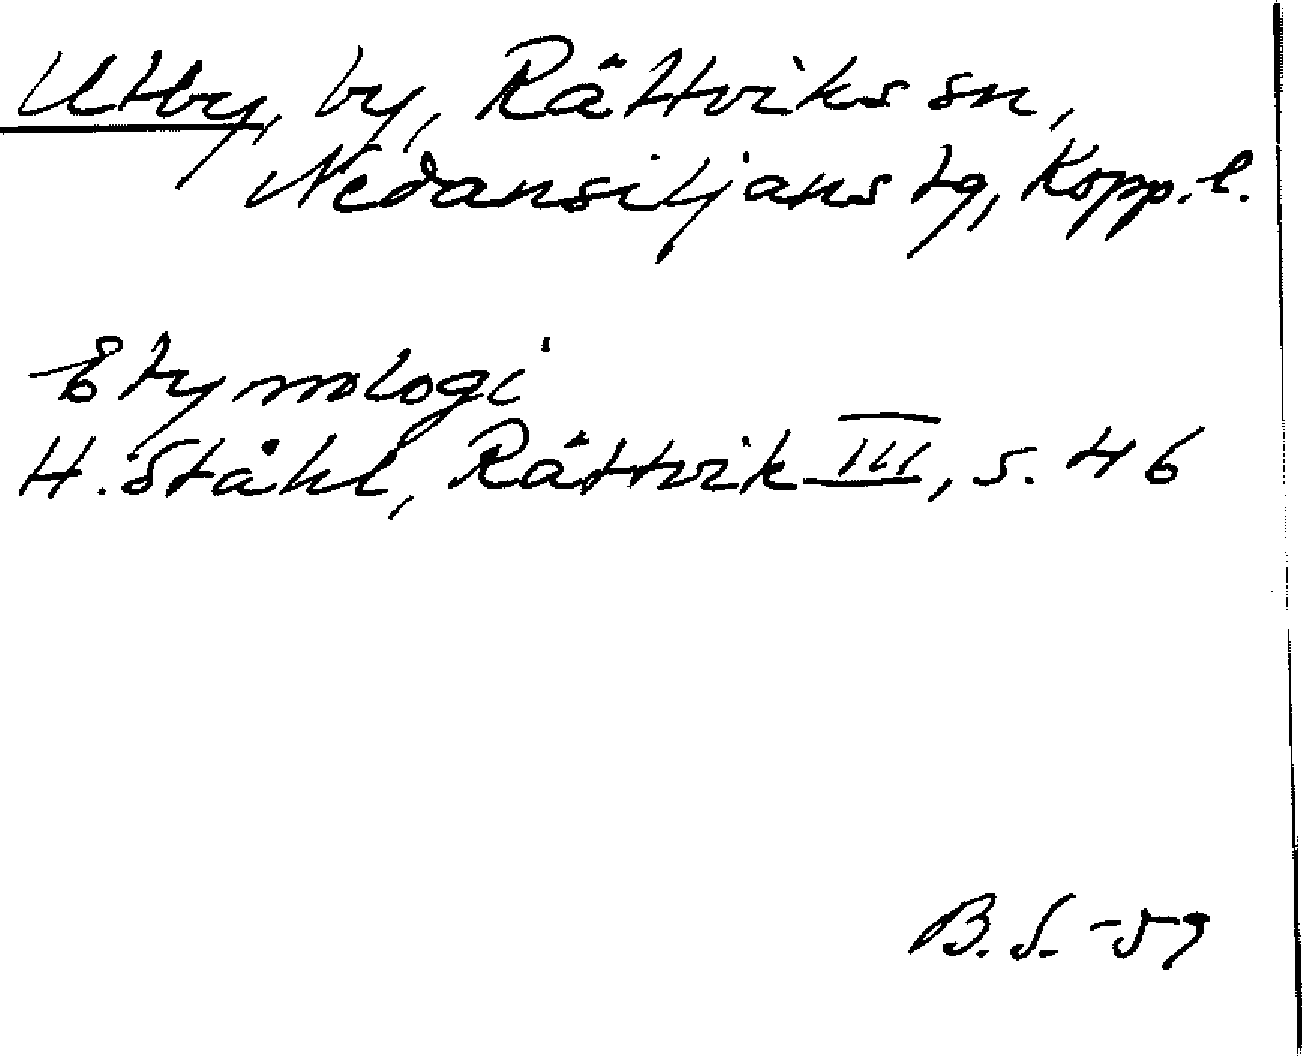 Utby, by, Rättviks sn,
Nedansiljans tg, Kopp. l.
Etymologi
H. Ståhl, Rättvik III, s. 46
B.S. -59